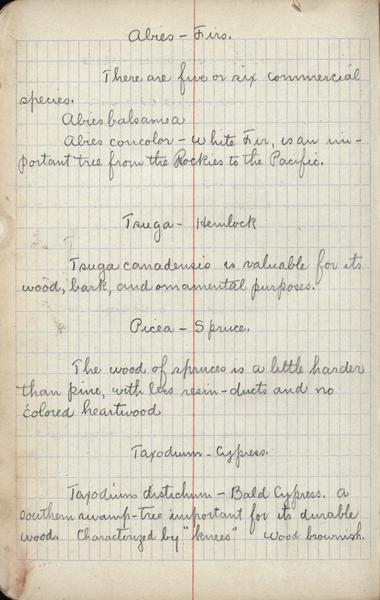 Abies - Firs.
There are five or six commercial
species.
Abies balsamea
Abies concolor - White Fir, is an im-
portant tree from the Rockies to the Pacific.
Tsuga - Hemlock
Tsuga canadensis is valuable for its
wood, bark, and ornamental purposes.
Picea - Spruce.
The wood of spruces is a little harder
than pine, with less resin-ducts and no
colored heartwood
Taxodium - Cypress.
Taxodium distichum - Bald Cypress. a
southern swamp-tree important for its durable
wood. Characterized by "knees" Wood brownish.